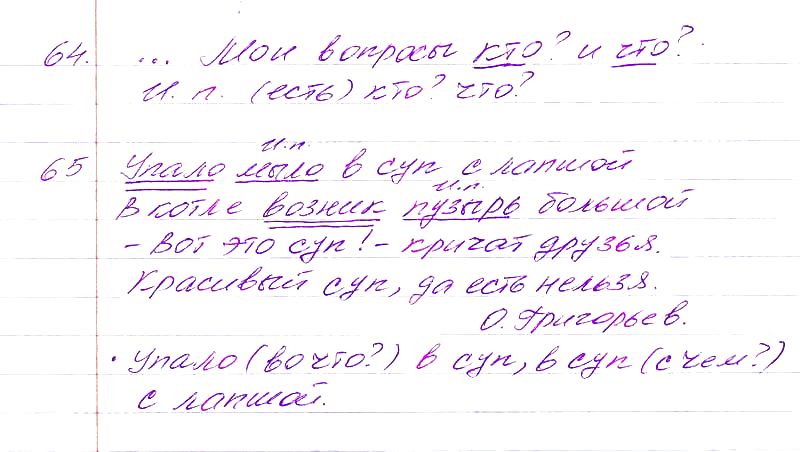 64. ... Мои вопросы кто? и что?
И. п. (есть) кто? что?
И.п.
65 Упало мыло в суп с лапшой
И.п.
В котле возник пузырь большой
- Вот это суп! - кричат друзья.
Красивый суп, да есть нельзя.
О. Григорьев.
• Упало (во что?) в суп, в суп (с чем?)
с лапшой.